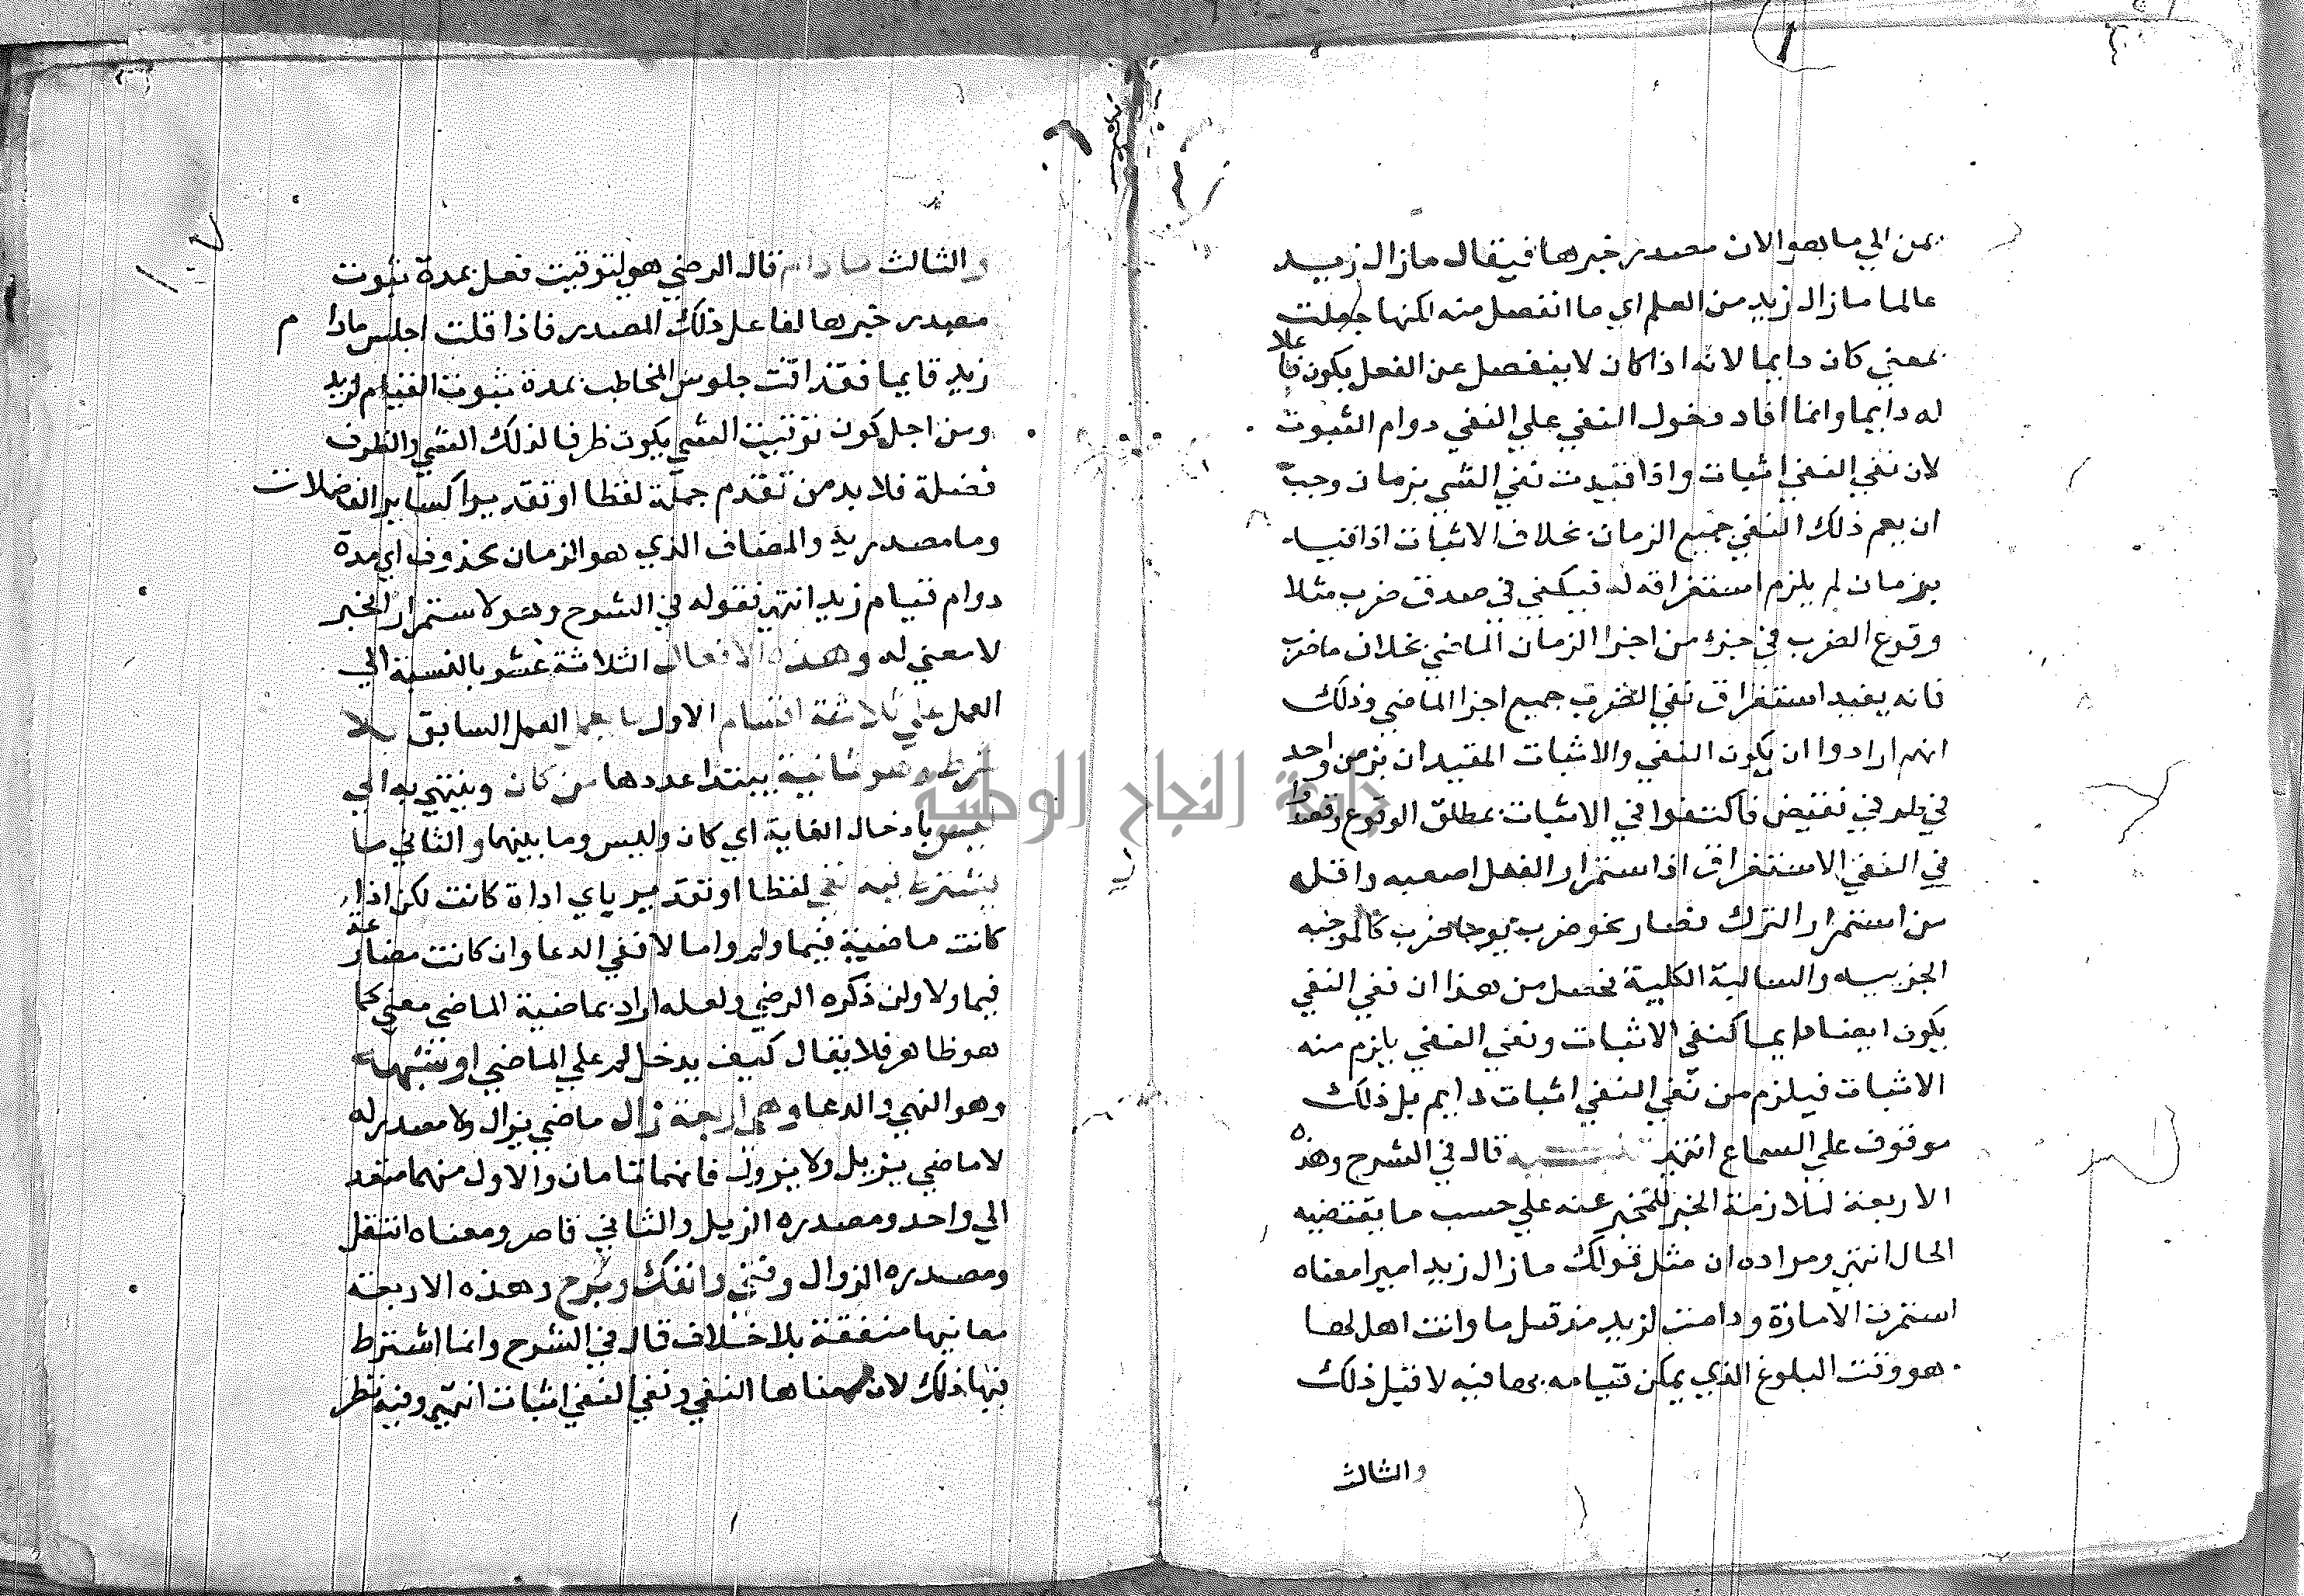 بمن الي ما هو الان مصدر خبرها فيقال ما زال زيد
عالما ما زال زيد من العلم اي ما انفصل منه لكنها جعلت
بمعني كان دايما لانه اذا كان لا ينفصل عن الفعل يكون فاعلا
له دايما وانما افاد دخول النفي علي النفي دوام الثبوت
لان نفي النفي اثبات واذا قيدت نفي الشي بزمان وجب
ان يعم ذلك النفي جميع الزمان بخلاف الاثبات اذا قيد
بزمان لم يلزم استغراقه له فيكفي في صدق ضرب مثلا
وقوع الضرب في جزء من اجزا الزمان الماضي بخلاف ما ضرب
فانه يفيد استغراق نفي الضرب جميع اجزا الماضي وذلك
انهم ارادوا ان يكون النفي والاثبات المقيدان بزمن واحد
في طرفي نقيض فاكتفوا في الاثبات بمطلق الوقوع وقصدوا
في النفي الاستغراق اذ استمرار الفعل اصعب واقل
من استمرار الترك فصار نحو ضرب وما ضرب كالموجبه
الجزييه والسالبة الكلية فحصل من هذا ان نفي النفي
يكون ايضا دايما كنفي الاثبات ونفي النفي يلزم منه
الاثبات فيلزم من نفي النفي اثبات دايم بل ذلك
موقوف علي السماع انتهي قال في الشرح وهذه
الاربعة لملازمة الخبر للمخبر عنه علي حسب ما يقتضيه
الحال انتهي ومراده ان مثل قولك ما زال زيد اميرا معناه
استمرت الامارة ودامت لزيد مذ قبل ما وانت اهل لها
هو وقت البلوغ الذي يمكن قيامه بها فيه لا قبل ذلك
والثالث
١٠٧
والثالث ما دام قال الرضي هو لتوقيت فعل بمدة ثبوت
مصدر خبرها لفاعل ذلك المصدر فاذا قلت اجلس مادام
زيد قايما فقد اقت جلوس المخاطب بمدة ثبوت القيام لزيد
ومن اجل كون توقيت الشي يكون ظرفا لذلك الشي والظرف
فضلة فلا بد من تقدم جملة لفظا او تقديرا كساير الفضلات
وما مصدرية والمضاف الذي هو الزمان محذوف اي مدة
دوام قيام زيد انتهي فقوله في الشرح وهو لاستمرار الخبر
لا معني له وهذه الافعال الثلاثة عشر بالنسبة الي
العمل علي ثلاثة اقسام الاول ما يعمل العمل السابق بلا
شرط وهو ثمانية يبتدا عددها من كان وينتهي به الي
ليس بادخال الغاية اي كان وليس وما بينهما والثاني ما
يشترط فيه نفي لفظا او تقديرا باي اداة كانت لكن اذا
كانت ماضية فبما ولم واما لا ففي الدعا وان كانت مضارعة
فبما ولا ولن ذكره الرضي ولعله اراد بماضية الماضي معني كما
هو ظاهر فلا يقال كيف يدخل لم علي الماضي او شبهه
وهو النهي والدعا وهي اربعة زال ماضي يزال ولا مصدر له
لا ماضي يزيل ولا يزول فانهما تامان والاول منهما متعد
الي واحد ومصدره الزيل والثاني قاصر ومعناه انتقل
ومصدره الزوال وفتئ وانفك وبرح وهذه الاربعة
معانيها متفقة بلا خلاف قال في الشرح وانما اشترط
فيها ذلك لان معناها النفي ونفي النفي اثبات انتهي وفيه نظر
جامعة النجاح الوطنية